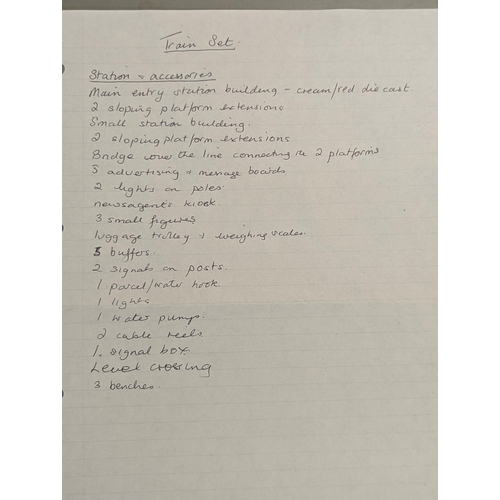 Train Set.
Station + accessories
Main entry station building - cream/red die cast.
2 sloping platform extensions
Small station building.
2 sloping platform extensions
Bridge over the line connecting the 2 platforms
5 advertising + message boards
2 lights on poles.
newsagents kiosk.
3 small figures
luggage trolley + weighing scales.
5 buffers.
2 signals on posts.
1 parcel/water hook.
1 lights
1 water pumps.
2 cable reels
1. signal box.
Level crossing
3 benches.